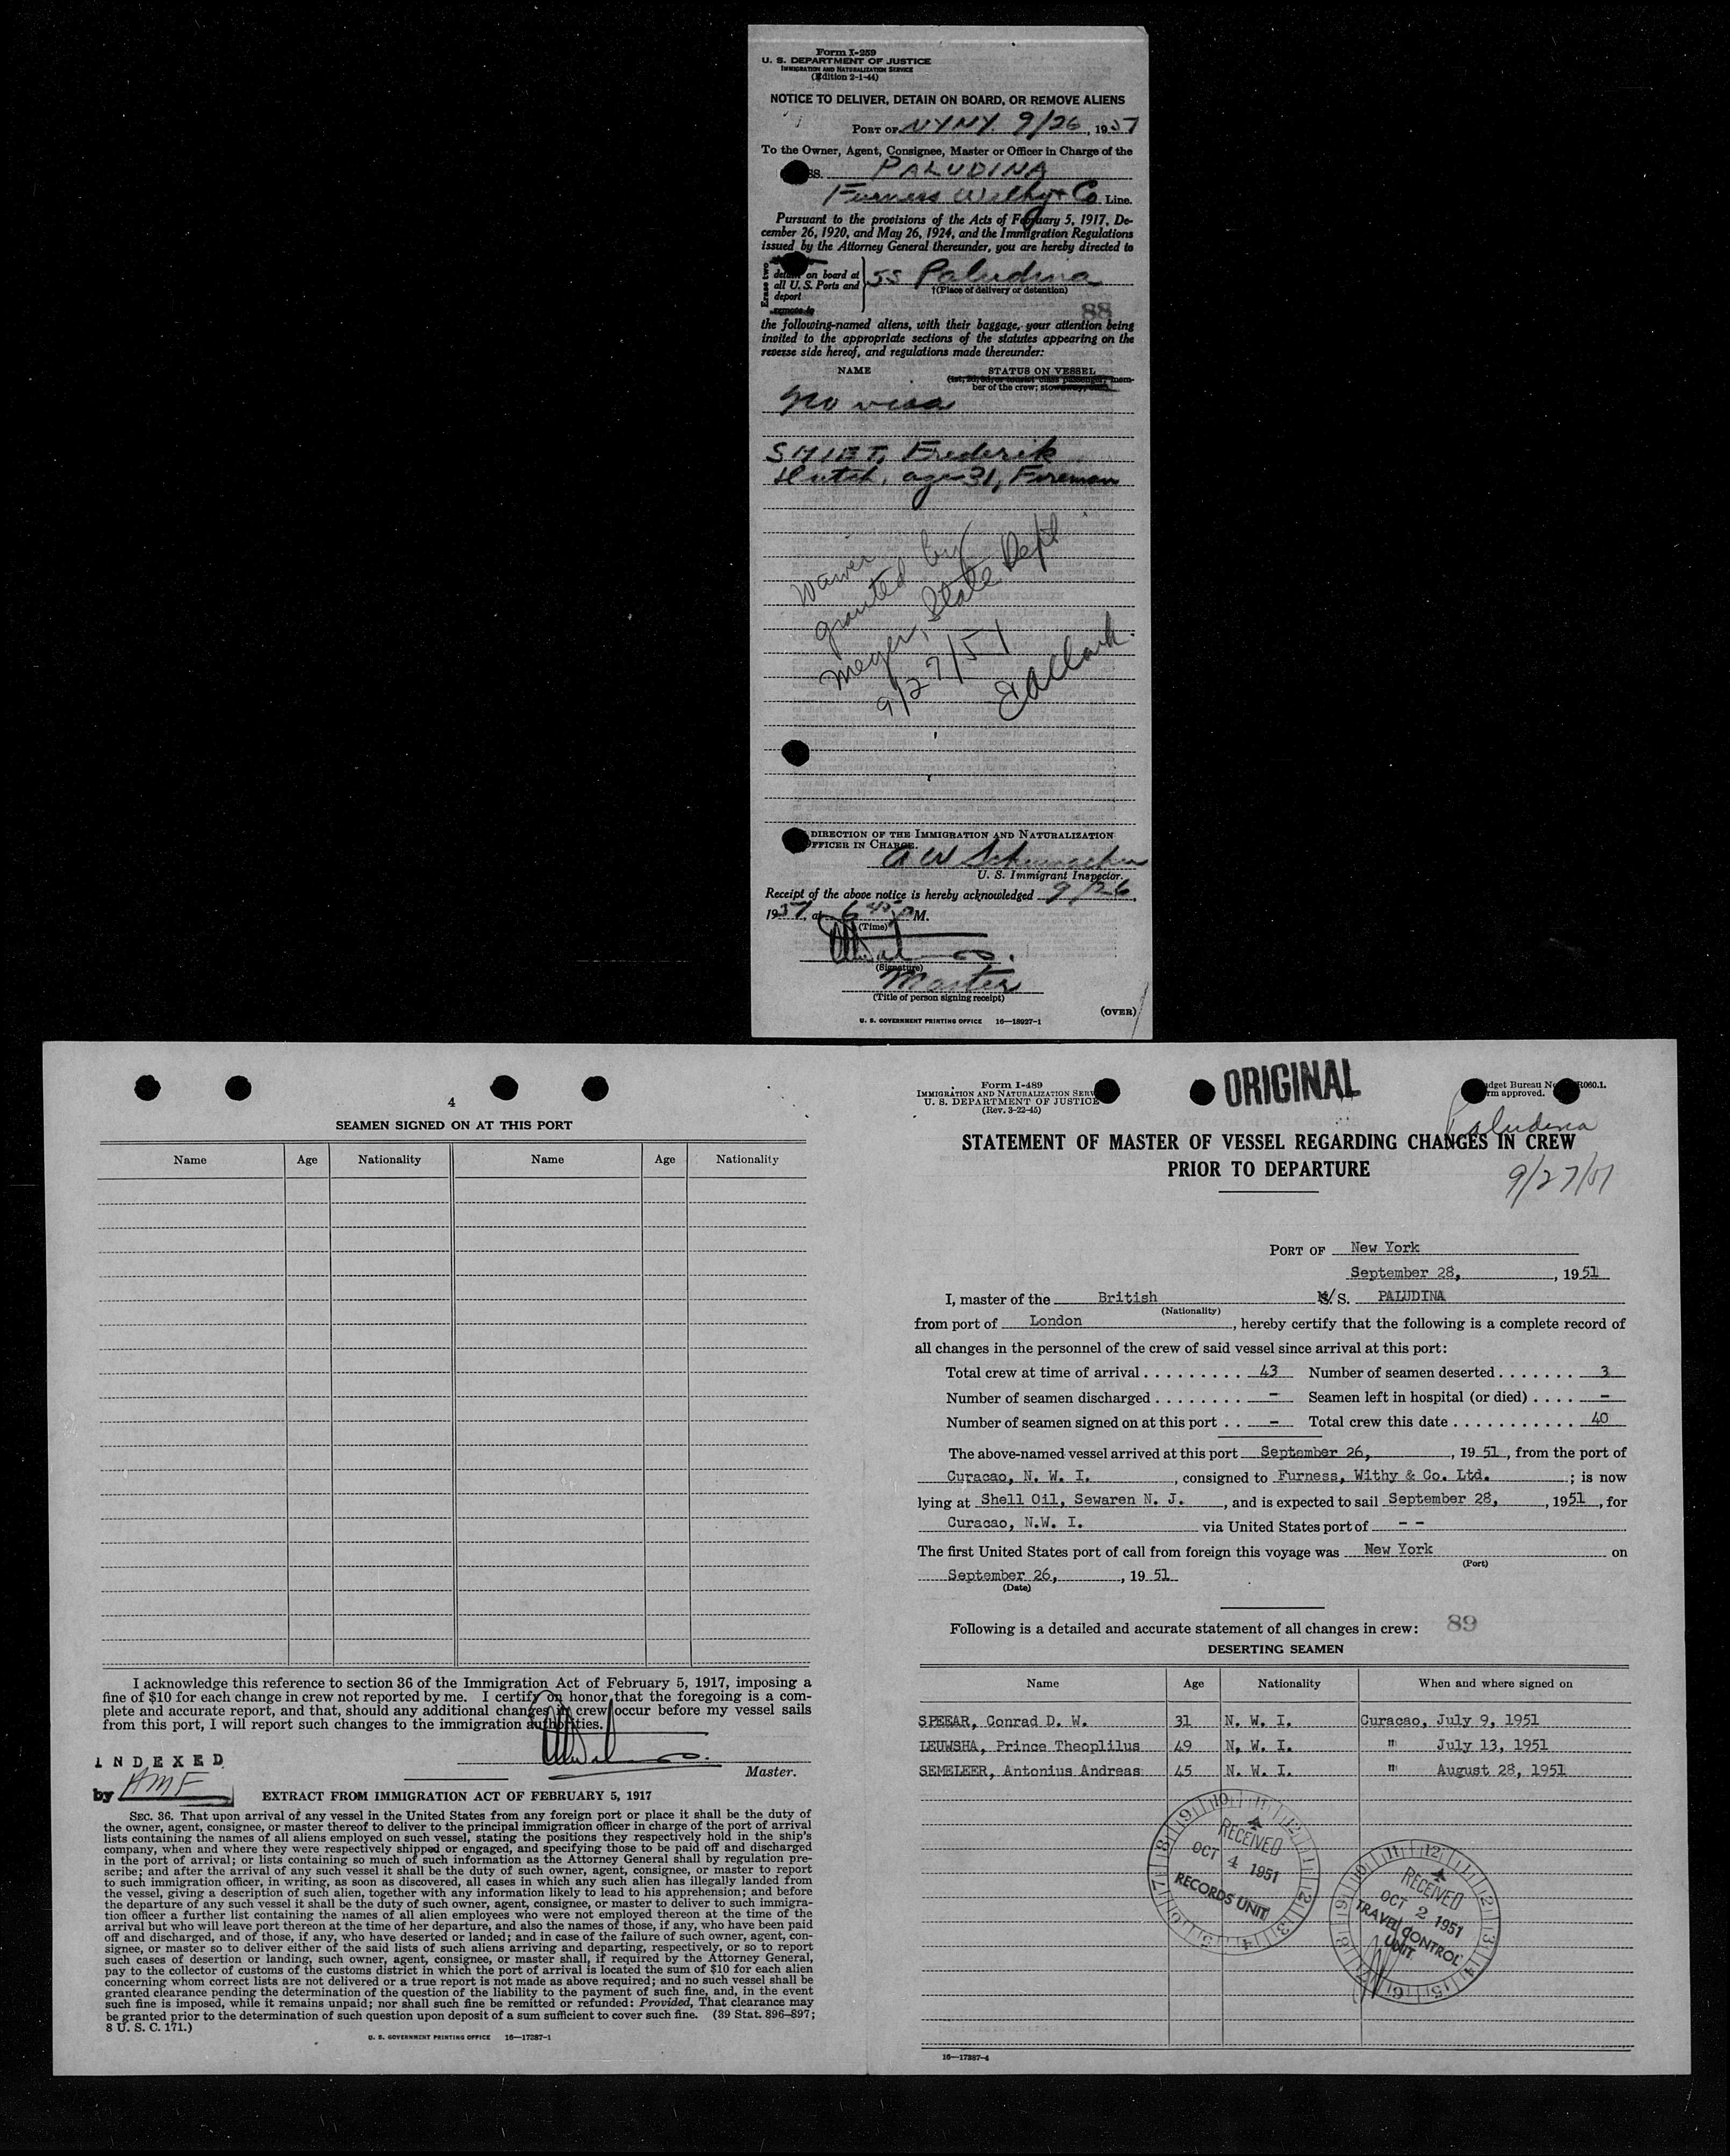 Form I-259
U. S. DEPARTMENT OF JUSTICE
IMMIGRATION AND NATURALIZATION SERVICE
(Edition 2-1-44)
NOTICE TO DELIVER, DETAIN ON BOARD, OR REMOVE ALIENS
PORT OF NYNY. 9/26, 1951
To the Owner, Agent, Consignee, Master or Officer in Charge of the
SS. PALUDINA
Furness Withy & Co Line.
Pursuant to the provisions of the Acts of February 5, 1917, De-
cember 26, 1920, and May 26, 1924, and the Immigration Regulations
issued by the Attorney General thereunder, you are hereby directed to
Erase two
detain on board at
all U. S. Ports and
deport
remove to
SS Paludina
†(Place of delivery or detention)
88
the following-named aliens, with their baggage, your attention being
invited to the appropriate sections of the statutes appearing on the
reverse side hereof, and regulations made thereunder:
NAME STATUS ON VESSEL
(1st, 2d, 3d, or tourist class passenger, mem-
ber of the crew; stowaway,
No visa
SMIET, Frederik
Dutch, age 31, Fireman
Waiver
granted by
Meyer, State Dept
9/27/51
E A Clark
DIRECTION OF THE IMMIGRATION AND NATURALIZATION
OFFICER IN CHARGE.
A W Schumacher
U. S. Immigrant Inspector.
Receipt of the above notice is hereby acknowledged 9/26,
1951, at 6 45 P M.
(Time)
(Signature)
Master
(Title of person signing receipt)
(OVER)
U. S. GOVERNMENT PRINTING OFFICE 16—18927-1
4
SEAMEN SIGNED ON AT THIS PORT
Name Age Nationality Name Age Nationality
I acknowledge this reference to section 36 of the Immigration Act of February 5, 1917, imposing a
fine of $10 for each change in crew not reported by me. I certify on honor that the foregoing is a com-
plete and accurate report, and that, should any additional changes in crew occur before my vessel sails
from this port, I will report such changes to the immigration authorities.
Master.
INDEXED
by HMF
EXTRACT FROM IMMIGRATION ACT OF FEBRUARY 5, 1917
SEC. 36. That upon arrival of any vessel in the United States from any foreign port or place it shall be the duty of
the owner, agent, consignee, or master thereof to deliver to the principal immigration officer in charge of the port of arrival
lists containing the names of all aliens employed on such vessel, stating the positions they respectively hold in the ship's
company, when and where they were respectively shipped or engaged, and specifying those to be paid off and discharged
in the port of arrival; or lists containing so much of such information as the Attorney General shall by regulation pre-
scribe; and after the arrival of any such vessel it shall be the duty of such owner, agent, consignee, or master to report
to such immigration officer, in writing, as soon as discovered, all cases in which any such alien has illegally landed from
the vessel, giving a description of such alien, together with any information likely to lead to his apprehension; and before
the departure of any such vessel it shall be the duty of such owner, agent, consignee, or master to deliver to such immigra-
tion officer a further list containing the names of all alien employees who were not employed thereon at the time of the
arrival but who will leave port thereon at the time of her departure, and also the names of those, if any, who have been paid
off and discharged, and of those, if any, who have deserted or landed; and in case of the failure of such owner, agent, con-
signee, or master so to deliver either of the said lists of such aliens arriving and departing, respectively, or so to report
such cases of desertion or landing, such owner, agent, consignee, or master shall, if required by the Attorney General,
pay to the collector of customs of the customs district in which the port of arrival is located the sum of $10 for each alien
concerning whom correct lists are not delivered or a true report is not made as above required; and no such vessel shall be
granted clearance pending the determination of the question of the liability to the payment of such fine, and, in the event
such fine is imposed, while it remains unpaid; nor shall such fine be remitted or refunded: Provided, That clearance may
be granted prior to the determination of such question upon deposit of a sum sufficient to cover such fine. (39 Stat. 896–897;
8 U. S. C. 171.)
U. S. GOVERNMENT PRINTING OFFICE 16—17387-1
Form I-489
IMMIGRATION AND NATURALIZATION SERV
U. S. DEPARTMENT OF JUSTICE
(Rev. 3-22-45)
ORIGINAL
dget Bureau No R060.1.
rm approved.
Paludina
STATEMENT OF MASTER OF VESSEL REGARDING CHANGES IN CREW
PRIOR TO DEPARTURE
9/27/51
PORT OF New York
September 28, , 1951
I, master of the British M/ S. PALUDINA
(Nationality)
from port of London , hereby certify that the following is a complete record of
all changes in the personnel of the crew of said vessel since arrival at this port:
Total crew at time of arrival . . . . . . . . . 43 Number of seamen deserted . . . . . . . 3
Number of seamen discharged . . . . . . . . - Seamen left in hospital (or died) . . . . -
Number of seamen signed on at this port . . - Total crew this date . . . . . . . . . . . . 40
The above-named vessel arrived at this port September 26, , 1951, from the port of
Curacao, N. W. I. , consigned to Furness, Withy & Co. Ltd. ; is now
lying at Shell Oil, Sewaren N. J. , and is expected to sail September 28, , 1951, for
Curacao, N.W. I. via United States port of - -
The first United States port of call from foreign this voyage was New York on
(Port)
September 26, , 1951
(Date)
Following is a detailed and accurate statement of all changes in crew: 89
DESERTING SEAMEN
Name Age Nationality When and where signed on
SPEEAR, Conrad D. W. 31 N. W. I. Curacao, July 9, 1951
LEUWSHA, Prince Theoplilus 49 N. W. I. " July 13, 1951
SEMELEER, Antonius Andreas 45 N. W. I. " August 28, 1951
RECEIVED
OCT 4 1951
RECORDS UNIT
RECEIVED
OCT 2 1951
TRAVEL CONTROL
UNIT
16—17387-4